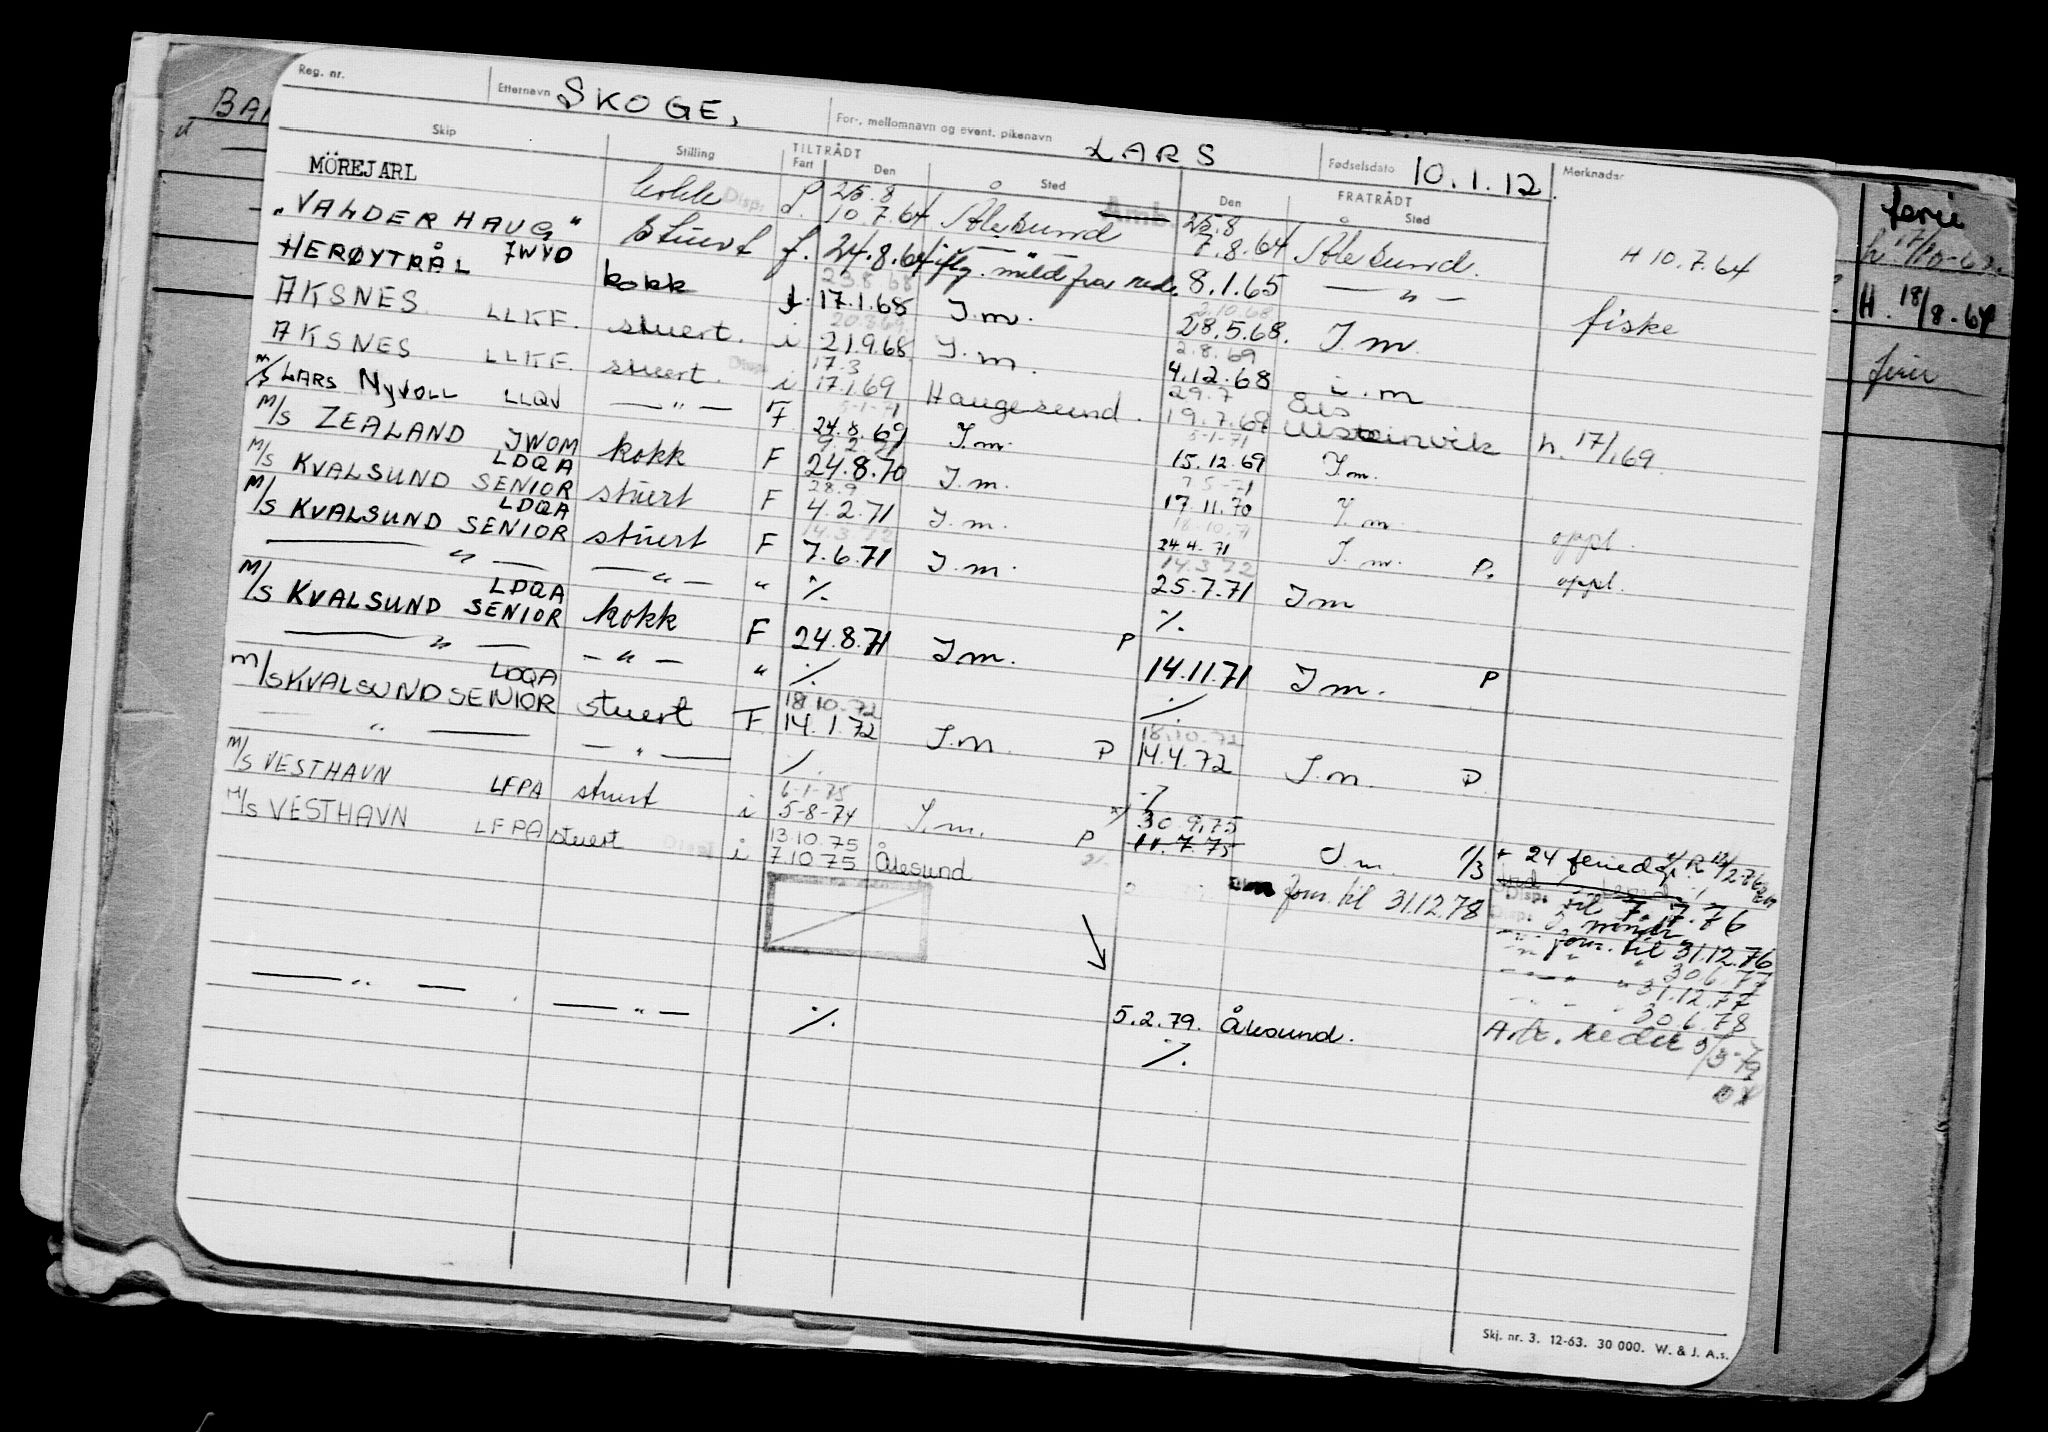 Reg. nr. Etternavn SKOGE, For-, mellomnavn og event. pikenavn LARS Fødselsdato 10.1.12. Merknader
Skip Stilling TILTRÅDT Fart Den Sted FRATRÅDT Den Sted
25.8 25.8
MÖREJARL kokk Disp. 10.7.64 Ålesund Amb. 7.8.64 Ålesund. H 10.7.64
"VALDERHAUG" JWVD Stuert f. 24.8.64 iflg. meld fra red. 8.1.65 — " — fiske
23.8.68 2.10.68
HERØYTRÅL kokk f. 17.1.68 I.m. 28.5.68. I.m.
20.3.69 2.8.69
AKSNES LLKF. stuert. i 21.9.68 I.m. 4.12.68 i.m
17.3 29.7
AKSNES LLKF. stuert. Disp. i 17.1.69 Haugesund. 19.7.69 Ulsteinvik h. 17/1.69.
5-1-71 5-1-71
M/S LARS NYVOLL LLQV — " — F 24.8.69 I.m. 15.12.69 I.m.
7 5-71
M/S ZEALAND JWOM kokk F 24.8.70 I.m. 17.11.70 I.m. oppl.
LDQA 28.9 18.10.71
M/S KVALSUND SENIOR stuert F 4.2.71 I.m. 24.4.71 I.m. P. oppl.
LDQA 14.3.72 14.3.72
M/S KVALSUND SENIOR stuert F 7.6.71 I.m. 25.7.71 I m
— " — — " — " ./. ./.
LDQA
M/S KVALSUND SENIOR kokk F 24.8.71 I m. P 14.11.71 I m. P
— " — — " — " ./. ./.
LDQA 18.10.72 18.10.72
M/S KVALSUND SENIOR stuert F 14.1.72 I.m. P 14.4.72 I.m. P
" — — " — ./. ./.
6-1-75 30.9.75
M/S VESTHAVN LFPA stuert i 5-8-74 I.m. P 11.7.75 I.m. 1/3 + 24 feried.
13.10.75
M/S VESTHAVN LFPA stuert Disp. i 7.10.75 Ålesund forn. til 31.12.78 Disp. til 7.7.76
Disp. 5 mndr.
forn. til 31.12.76
" " 30.6.77
" " 31.12.77
" " 30.6.78
— " — — " — ./. 5.2.79. Ålesund. A.k. reder 3/3-79
./.
Skj. nr. 3. 12-63. 30 000. W. & J. A.s.
BAN
ferie
h 17/10-62.
H. 18/8.64
ferie